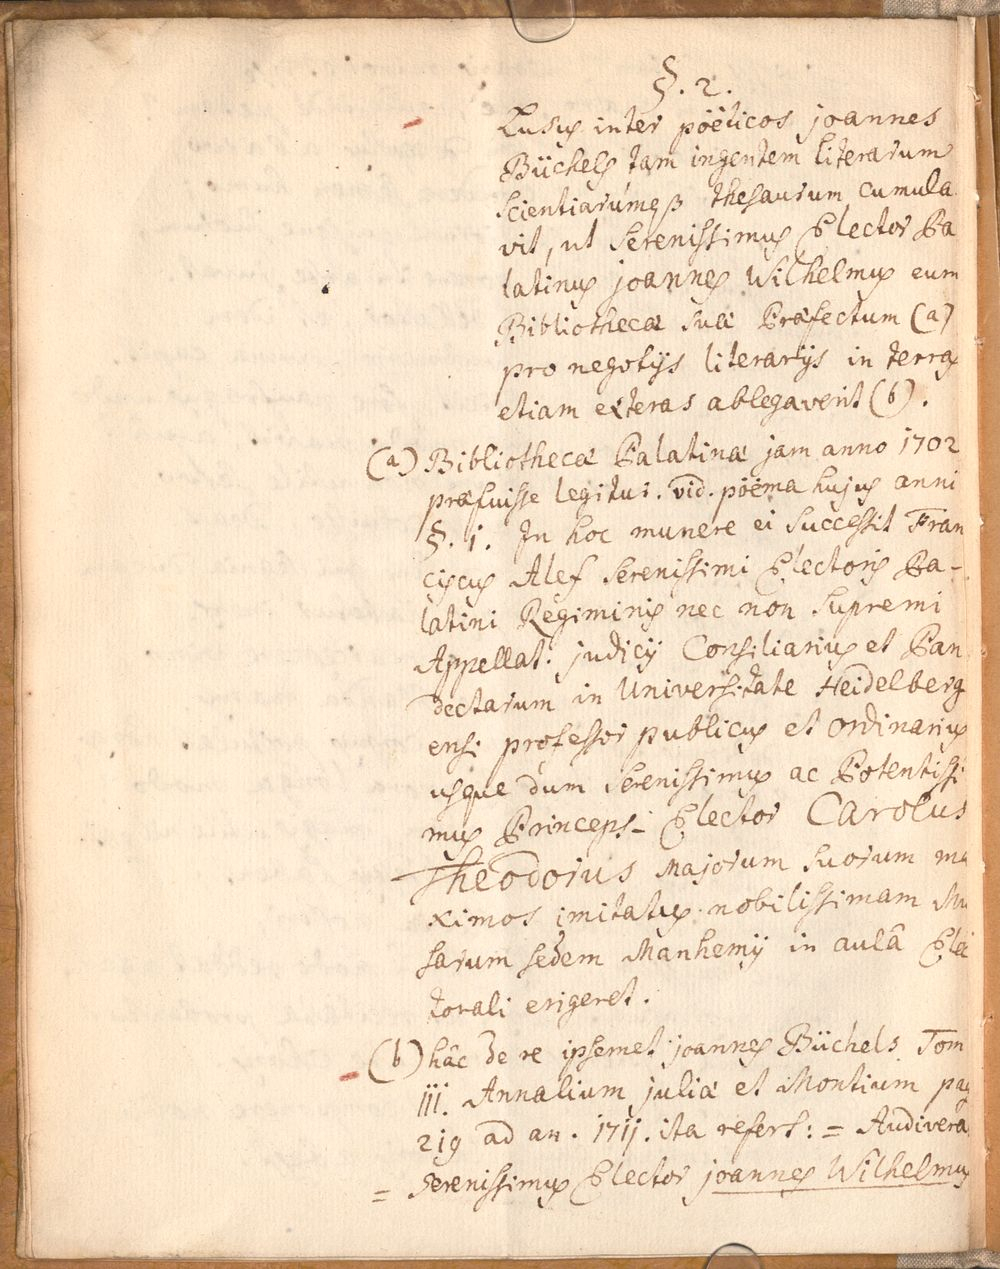 §. 2.
Lusus inter pöëticos joannes
Büchels tam ingentem literarum
scientiarúmqꝫ thesaurum cumula
vit, ut Serenissimus Elector Pa
latinus joannes Wilhelmus eum
Bibliothecæ suæ Præfectum (a)
pro negotijs literarijs in terras
etiam exteras ablegaverit (b).
(a) Bibliothecæ Palatinæ jam anno 1702
præfuisse legitur. vid. pöëma hujus anni
§. 1. In hoc munere ei successit Fran
ciscus Alef Serenissimi Electoris Pa-
latini Regiminis nec non Supremi
Appellat. judicij Consiliarius et Pan
dectarum in Universitate Heidelberg
ensi professor publicus et ordinarius
usque dum Serenissimus ac Potentissi
mus Princeps- Elector Carolus
Theodorus Majorum suorum ma
ximos imitatus nobilissimam Mu
sarum sedem Manhemij in aulâ Elec
torali erigeret.
(b) hâc de re ipsemet joannes Büchels Tom
III. Annalium juliæ et Montium pag
219 ad an. 1711. ita refert: = Audivera
= Serenissimus Elector joannes Wilhelmus